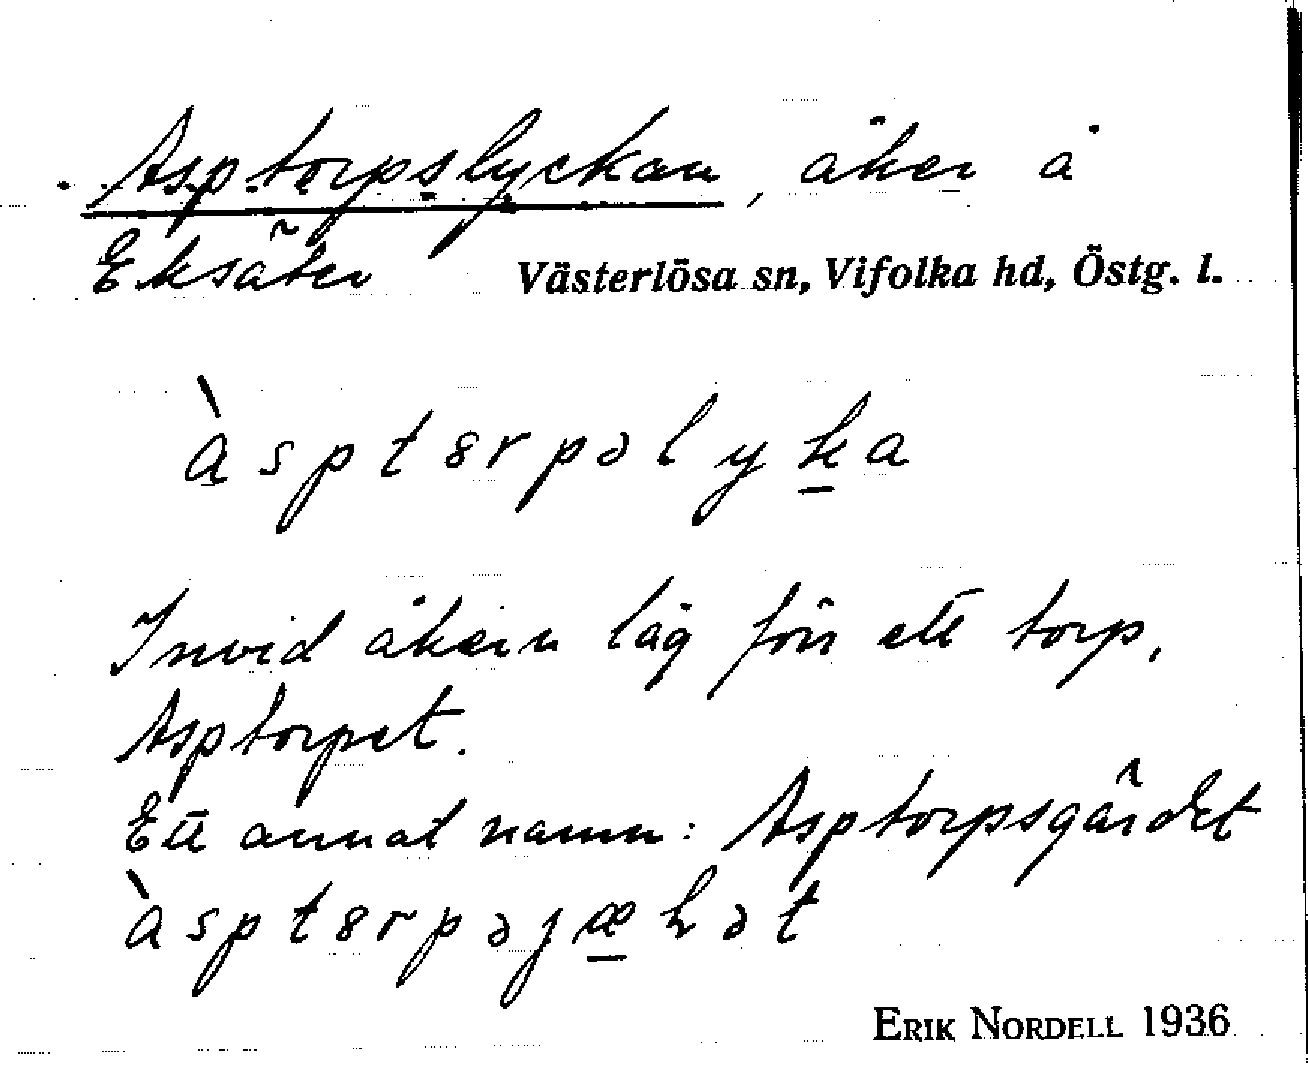 Asptorpslyckan, åker å
Eksäter Västerlösa sn, Vifolka hd, Östg. l.
àspt8rpəlyka
Invid åkern låg förr ett torp,
Asptorpet.
Ett annat namn: Asptorpsgärdet
àspt8rpəjæɖət
ERIK NORDELL 1936